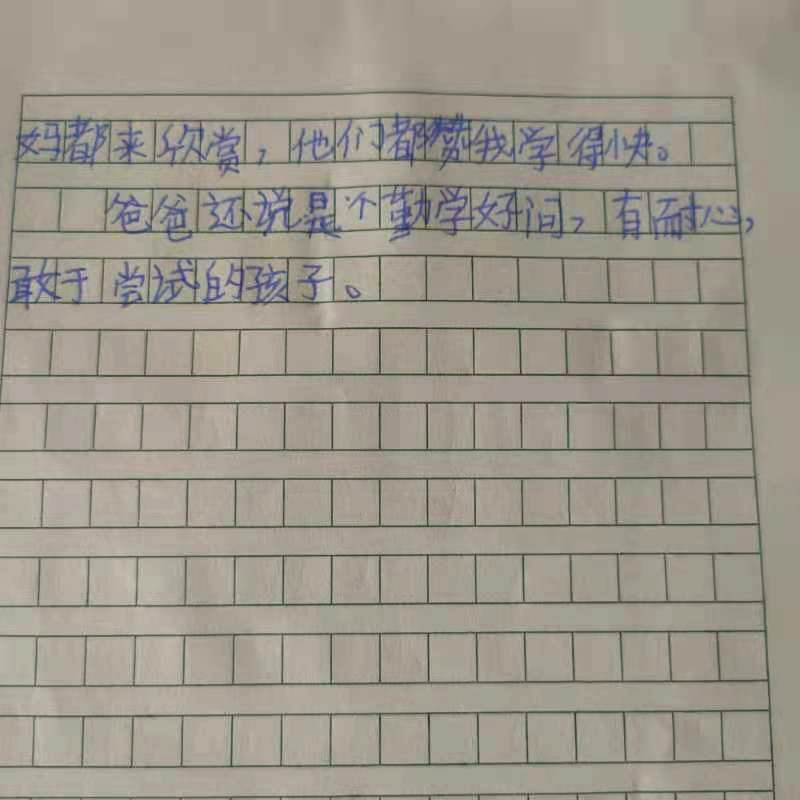 妈都来欣赏，他们都赞我学得快。
爸爸还说是个勤学好问，有耐心，
敢于尝试的孩子。